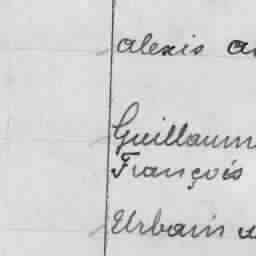 alexis
Guillaum
François
Urbain